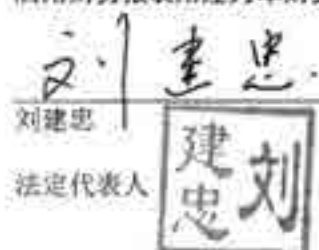 刘建忠
刘建忠
法定代表人
刘建忠